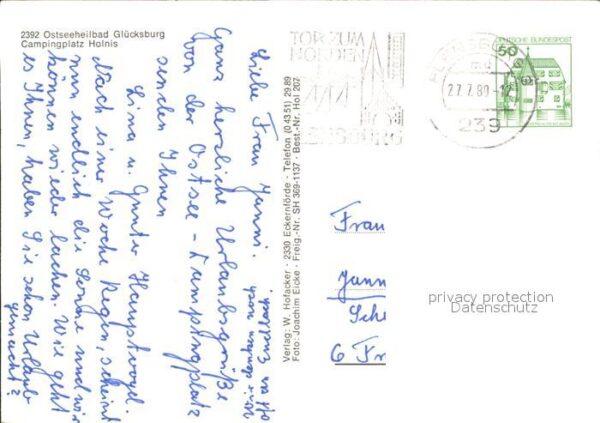 2392 Ostseeheilbad Glücksburg
Campingplatz Holnis
Liebe Frau Janni.
Ganz herzliche Urlaubsgrüße
von der Ostsee - Campingplatz
senden Ihnen
Lina u. Günter Hauptvogel.
Nach einer Woche Regen, scheint
nun endlich die Sonne und wir
können wieder lachen. Wie geht
es Ihnen, haben Sie schon Urlaub
gemacht?
noch denken wir
Verlag: W. Hofacker - 2330 Eckernförde - Telefon (0 43 51) 29 89
Foto: Joachim Eicke - Freig.-Nr. SH 369-1137 - Best.-Nr. Hol 207
TOR ZUM
NORDEN
FLENSBURG
FLENSBURG
27.7.80-12
239
DEUTSCHE BUNDESPOST
50
Frau
Jann
Sche
6 Fr
privacy protection
Datenschutz